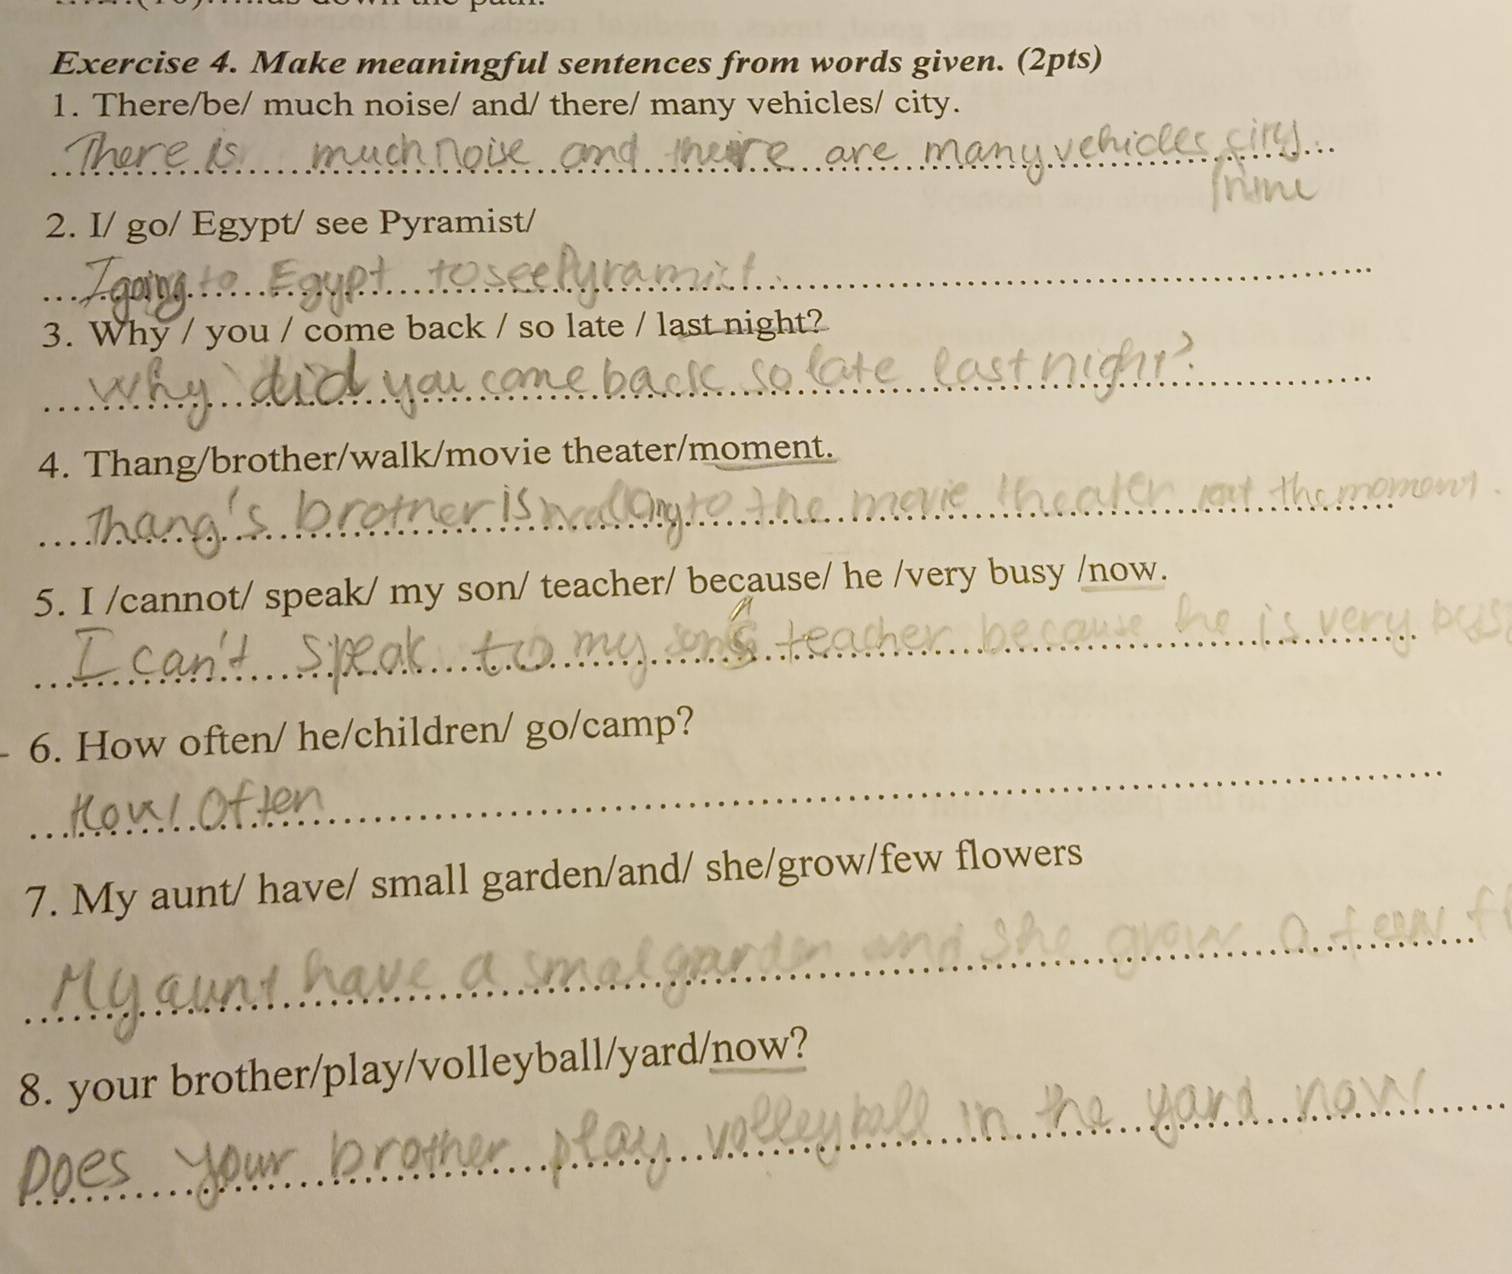 the path.
Exercise 4. Make meaningful sentences from words given. (2pts)
1. There/be/ much noise/ and/ there/ many vehicles/ city.
There is much noise and there are many vehicles city
in the
2. I/ go/ Egypt/ see Pyramist/
I going to Egypt to see Pyramist.
3. Why / you / come back / so late / last night?
Why did you come back so late last night?
4. Thang/brother/walk/movie theater/moment.
Thang's brother is walking to the movie theater at the moment.
5. I /cannot/ speak/ my son/ teacher/ because/ he /very busy /now.
I can't speak to my son's teacher because he is very bus
6. How often/ he/children/ go/camp?
How Often
7. My aunt/ have/ small garden/and/ she/grow/few flowers
My aunt have a smal garden and she grow a few fl
8. your brother/play/volleyball/yard/now?
Does your brother play volleyball in the yard now